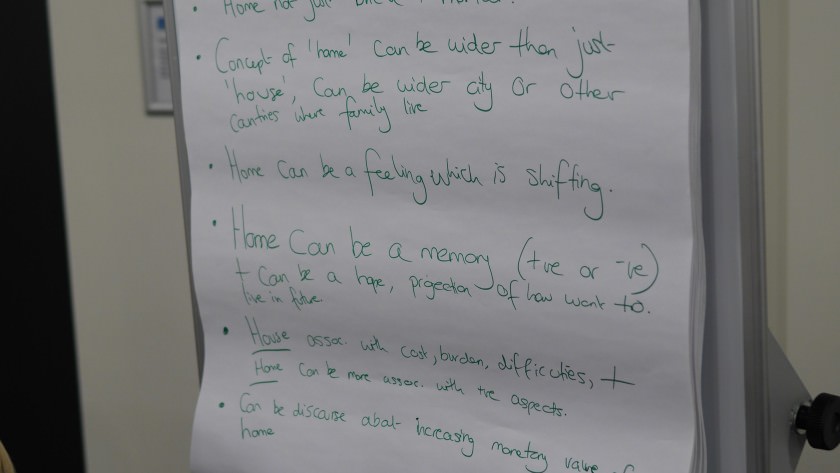 • Home not just
• Concept of 'home' can be wider than just
'house', Can be wider city or other
countries where family live
• Home can be a feeling which is shifting.
• Home can be a memory (+ve or -ve)
+ can be a hope, projection of how want to.
live in future.
• House assoc. with cost, burden, difficulties, +
Home can be more assoc. with +ve aspects.
• Can be discourse about increasing monetary value
home